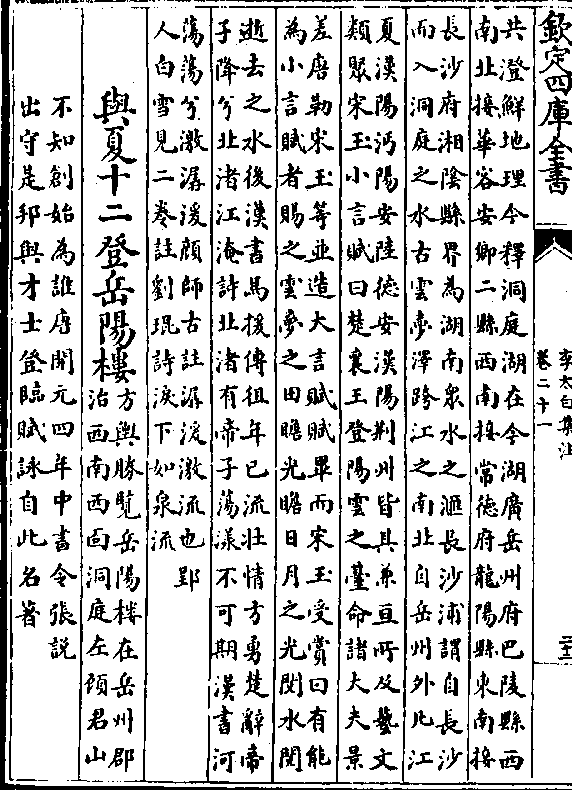 欽定四庫全書
李太白集注
卷二十一
共澄鮮地理今釋洞庭湖在今湖廣岳州府巴陵縣西
南北接華容安鄉二縣西南接常德府龍陽縣東南接
長沙府湘陰縣界為湖南衆水之滙長沙浦謂自長沙
而入洞庭之水古雲夢澤跨江之南北自岳州外凡江
夏漢陽沔陽安陸德安漢陽荆州皆其兼亘所及藝文
類聚宋玉小言賦曰楚襄王登陽雲之臺命諸大夫景
差唐勒宋玉等並造大言賦賦畢而宋玉受賞曰有能
為小言賦者賜之雲夢之田瞻光瞻日月之光閔水閔
逝去之水後漢書馬援傳徂年已流壯情方勇楚辭帝
子降兮北渚江淹詩北渚有帝子蕩漾不可期漢書河
蕩蕩兮激潺湲顔師古註潺湲激流也郢
人白雪見二卷註劉琨詩淚下如泉流
與夏十二登岳陽樓
方輿勝覽岳陽樓在岳州郡
治西南西面洞庭左顧君山
不知創始為誰唐開元四年中書令張説
出守是邦與才士登臨賦詠自此名著